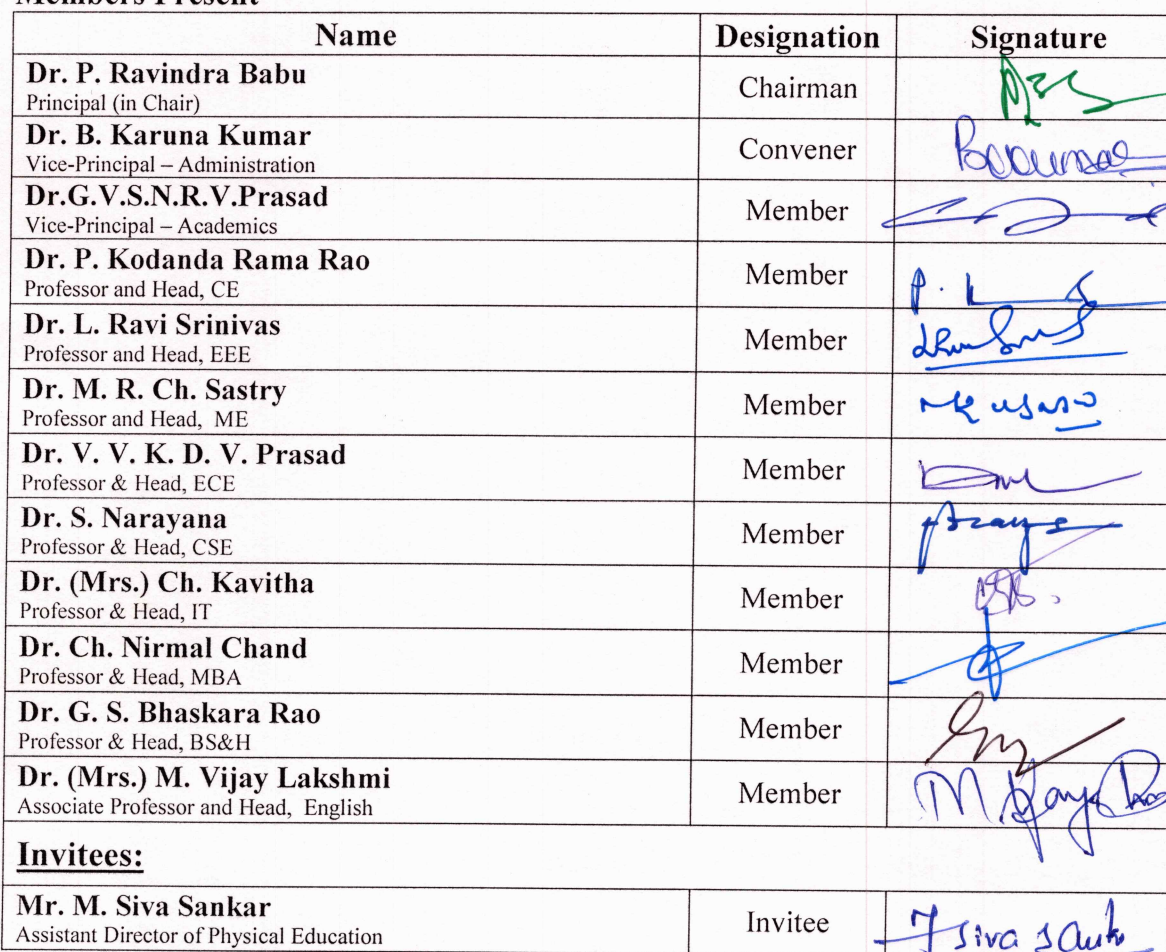 Members Present
Name Designation Signature
Dr. P. Ravindra Babu
Principal (in Chair)
Chairman
Dr. B. Karuna Kumar
Vice-Principal – Administration
Convener
Dr.G.V.S.N.R.V.Prasad
Vice-Principal – Academics
Member
Dr. P. Kodanda Rama Rao
Professor and Head, CE
Member
Dr. L. Ravi Srinivas
Professor and Head, EEE
Member
Dr. M. R. Ch. Sastry
Professor and Head, ME
Member
Dr. V. V. K. D. V. Prasad
Professor & Head, ECE
Member
Dr. S. Narayana
Professor & Head, CSE
Member
Dr. (Mrs.) Ch. Kavitha
Professor & Head, IT
Member
Dr. Ch. Nirmal Chand
Professor & Head, MBA
Member
Dr. G. S. Bhaskara Rao
Professor & Head, BS&H
Member
Dr. (Mrs.) M. Vijay Lakshmi
Associate Professor and Head, English
Member
Invitees:
Mr. M. Siva Sankar
Assistant Director of Physical Education
Invitee